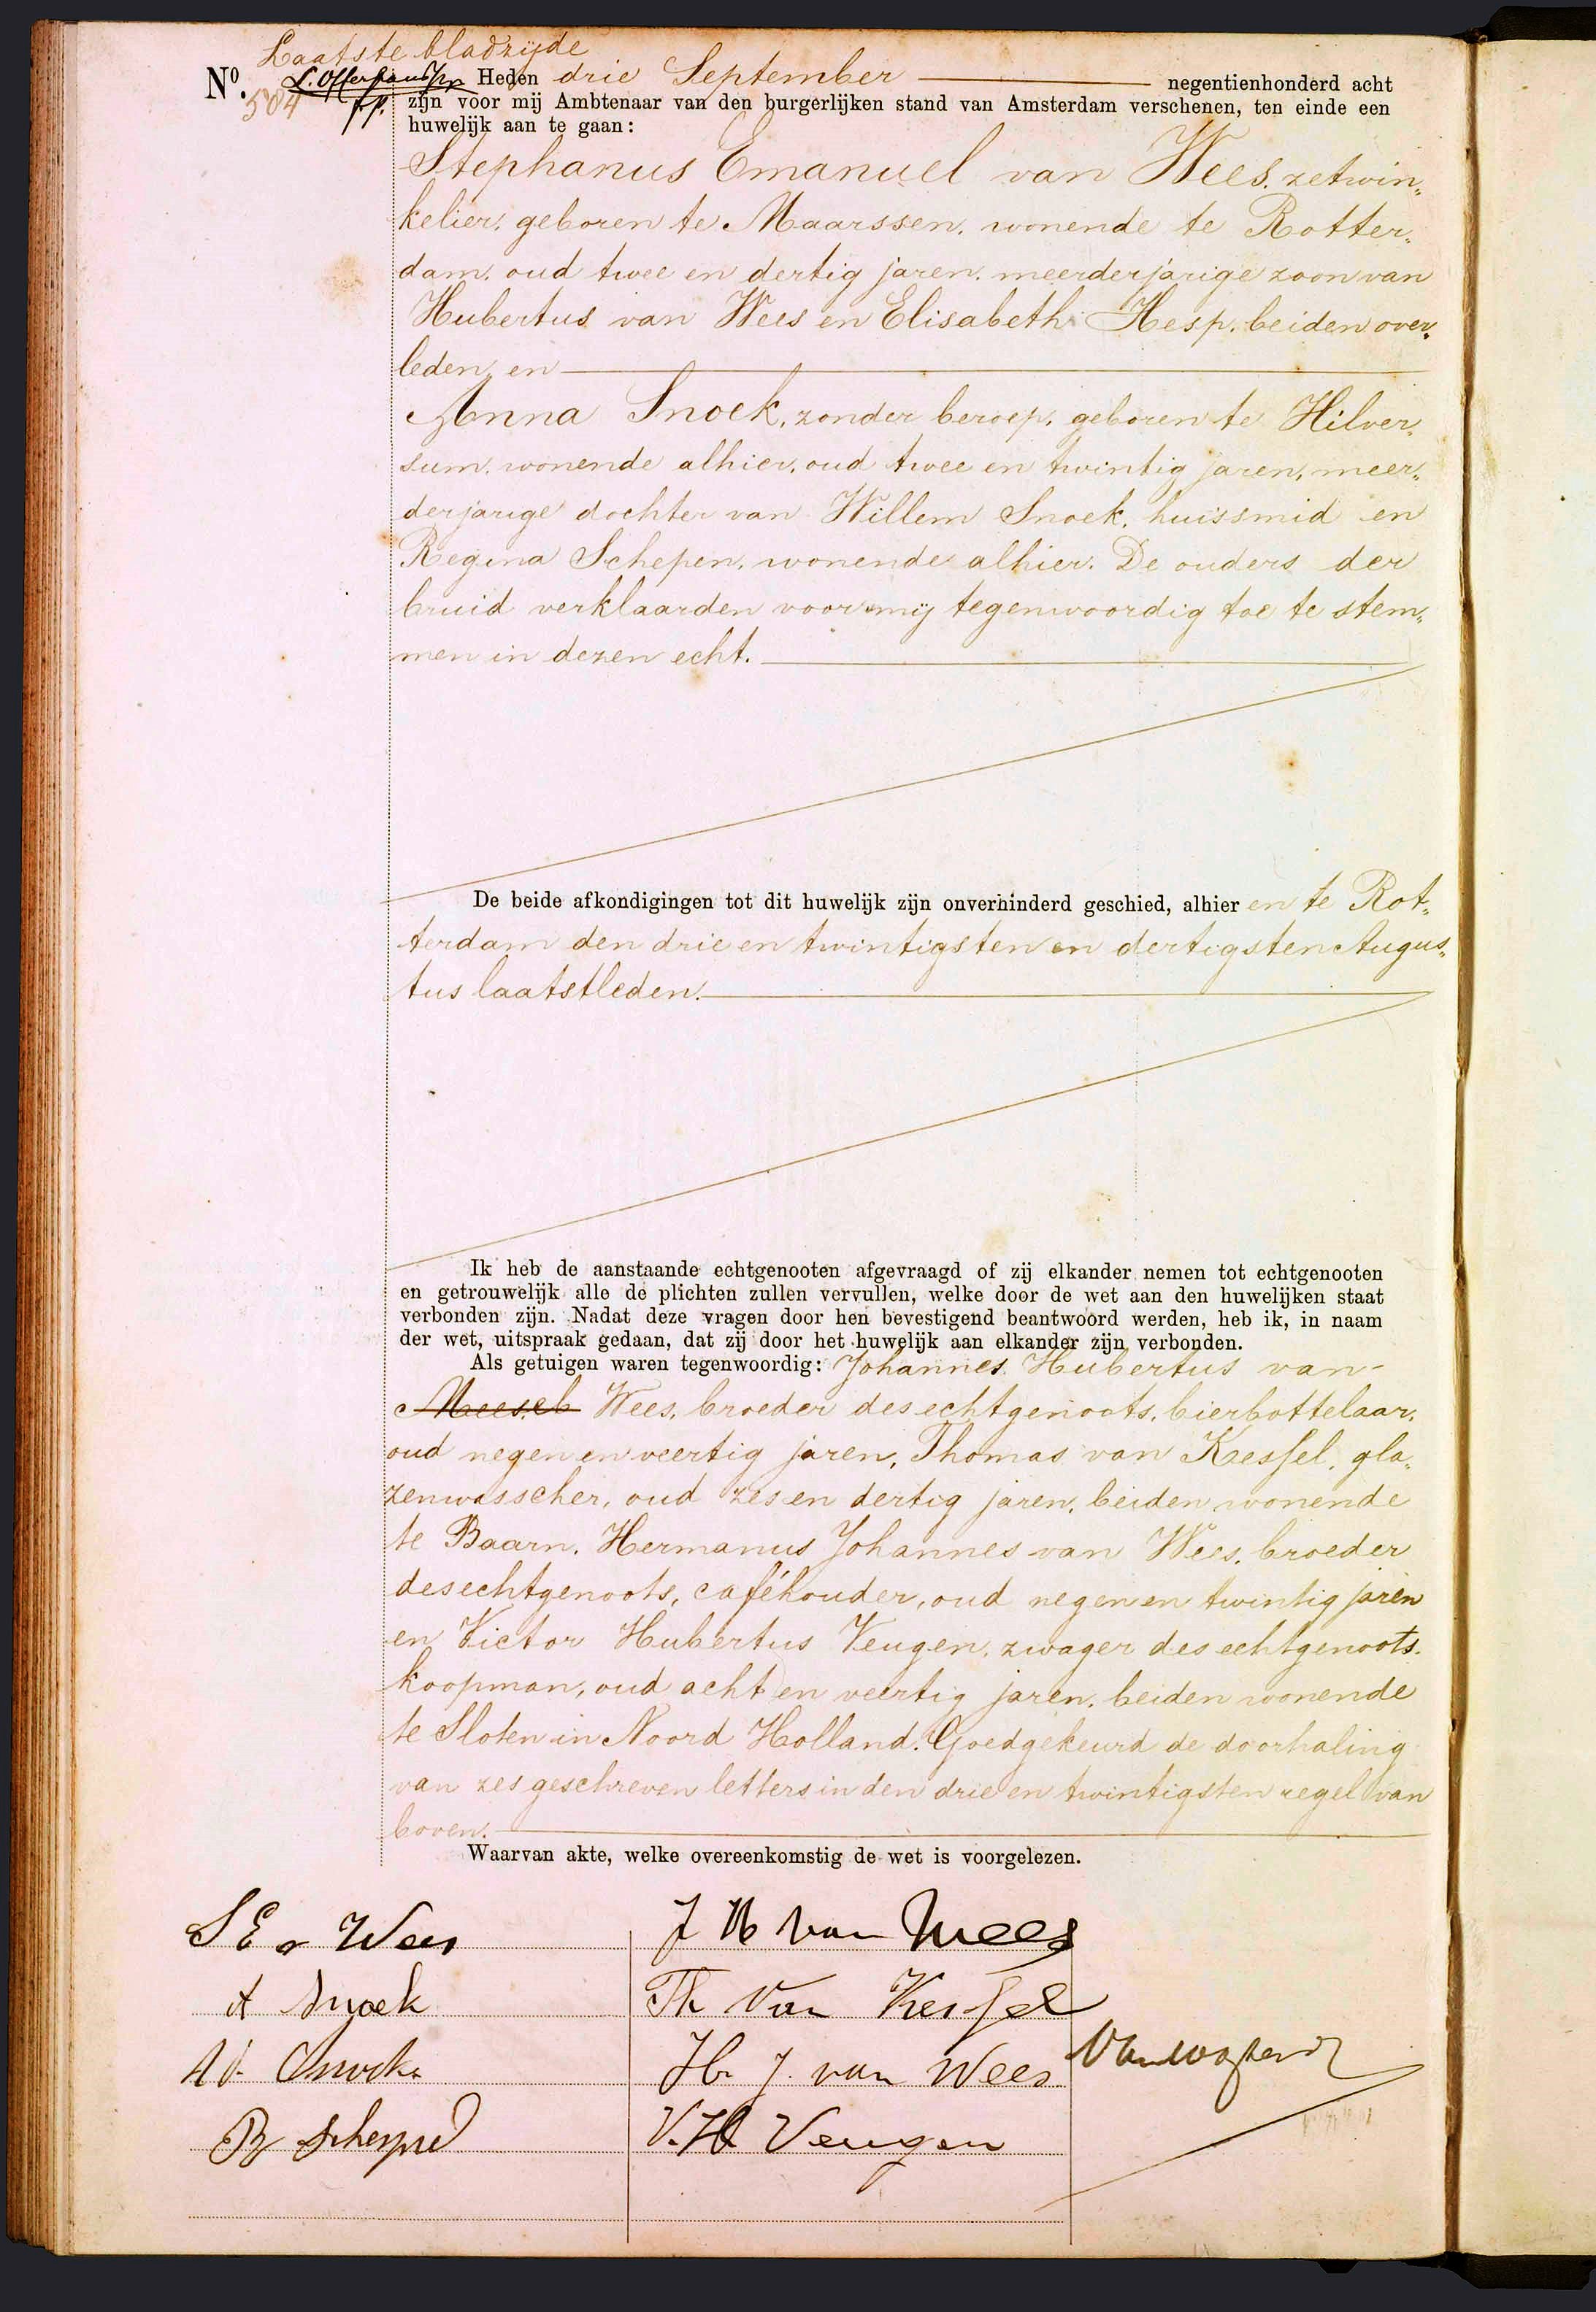 Laatste bladzijde
Nº. 504 Heden drie September negentienhonderd acht
zijn voor mij Ambtenaar van den burgerlijken stand van Amsterdam verschenen, ten einde een
huwelijk aan te gaan:
Stephanus Emanuel van Wees, zetwin„
kelier, geboren te Maarssen, wonende te Rotter„
dam, oud twee en dertig jaren, meerderjarige zoon van
Hubertus van Wees en Elisabeth Hesp, beiden over„
leden, en
Anna Snoek, zonder beroep, geboren te Hilver„
sum, wonende alhier, oud twee en twintig jaren, meer„
derjarige dochter van Willem Snoek, huissmid en
Regina Schepen, wonende alhier. De ouders der
bruid verklaarden voor mij tegenwoordig toe te stem„
men in dezen echt.
De beide afkondigingen tot dit huwelijk zijn onverhinderd geschied, alhier en te Rot„
terdam den drie en twintigsten en dertigsten Augus„
tus laatstleden.
Ik heb de aanstaande echtgenooten afgevraagd of zij elkander nemen tot echtgenooten
en getrouwelijk alle de plichten zullen vervullen, welke door de wet aan den huwelijken staat
verbonden zijn. Nadat deze vragen door hen bevestigend beantwoord werden, heb ik, in naam
der wet, uitspraak gedaan, dat zij door het huwelijk aan elkander zijn verbonden.
Als getuigen waren tegenwoordig: Johannes Hubertus van
Wees, broeder des echtgenoots, bierbottelaar,
oud negen en veertig jaren, Thomas van Kessel, gla„
zenwasscher, oud zes en dertig jaren, beiden wonende
te Baarn, Hermanus Johannes van Wees, broeder
des echtgenoots, caféhouder, oud negen en twintig jaren
en Victor Hubertus Veugen, zwager des echtgenoots,
koopman, oud acht en veertig jaren, beiden wonende
te Sloten in Noord Holland. Goedgekeurd de doorhaling
van zes geschreven letters in den drie en twintigsten regel van
boven.
Waarvan akte, welke overeenkomstig de wet is voorgelezen.
S E v Wees
J H van Wees
A Snoek
Th van Kessel
Snoek
H. J. van Wees
V. H Veugen